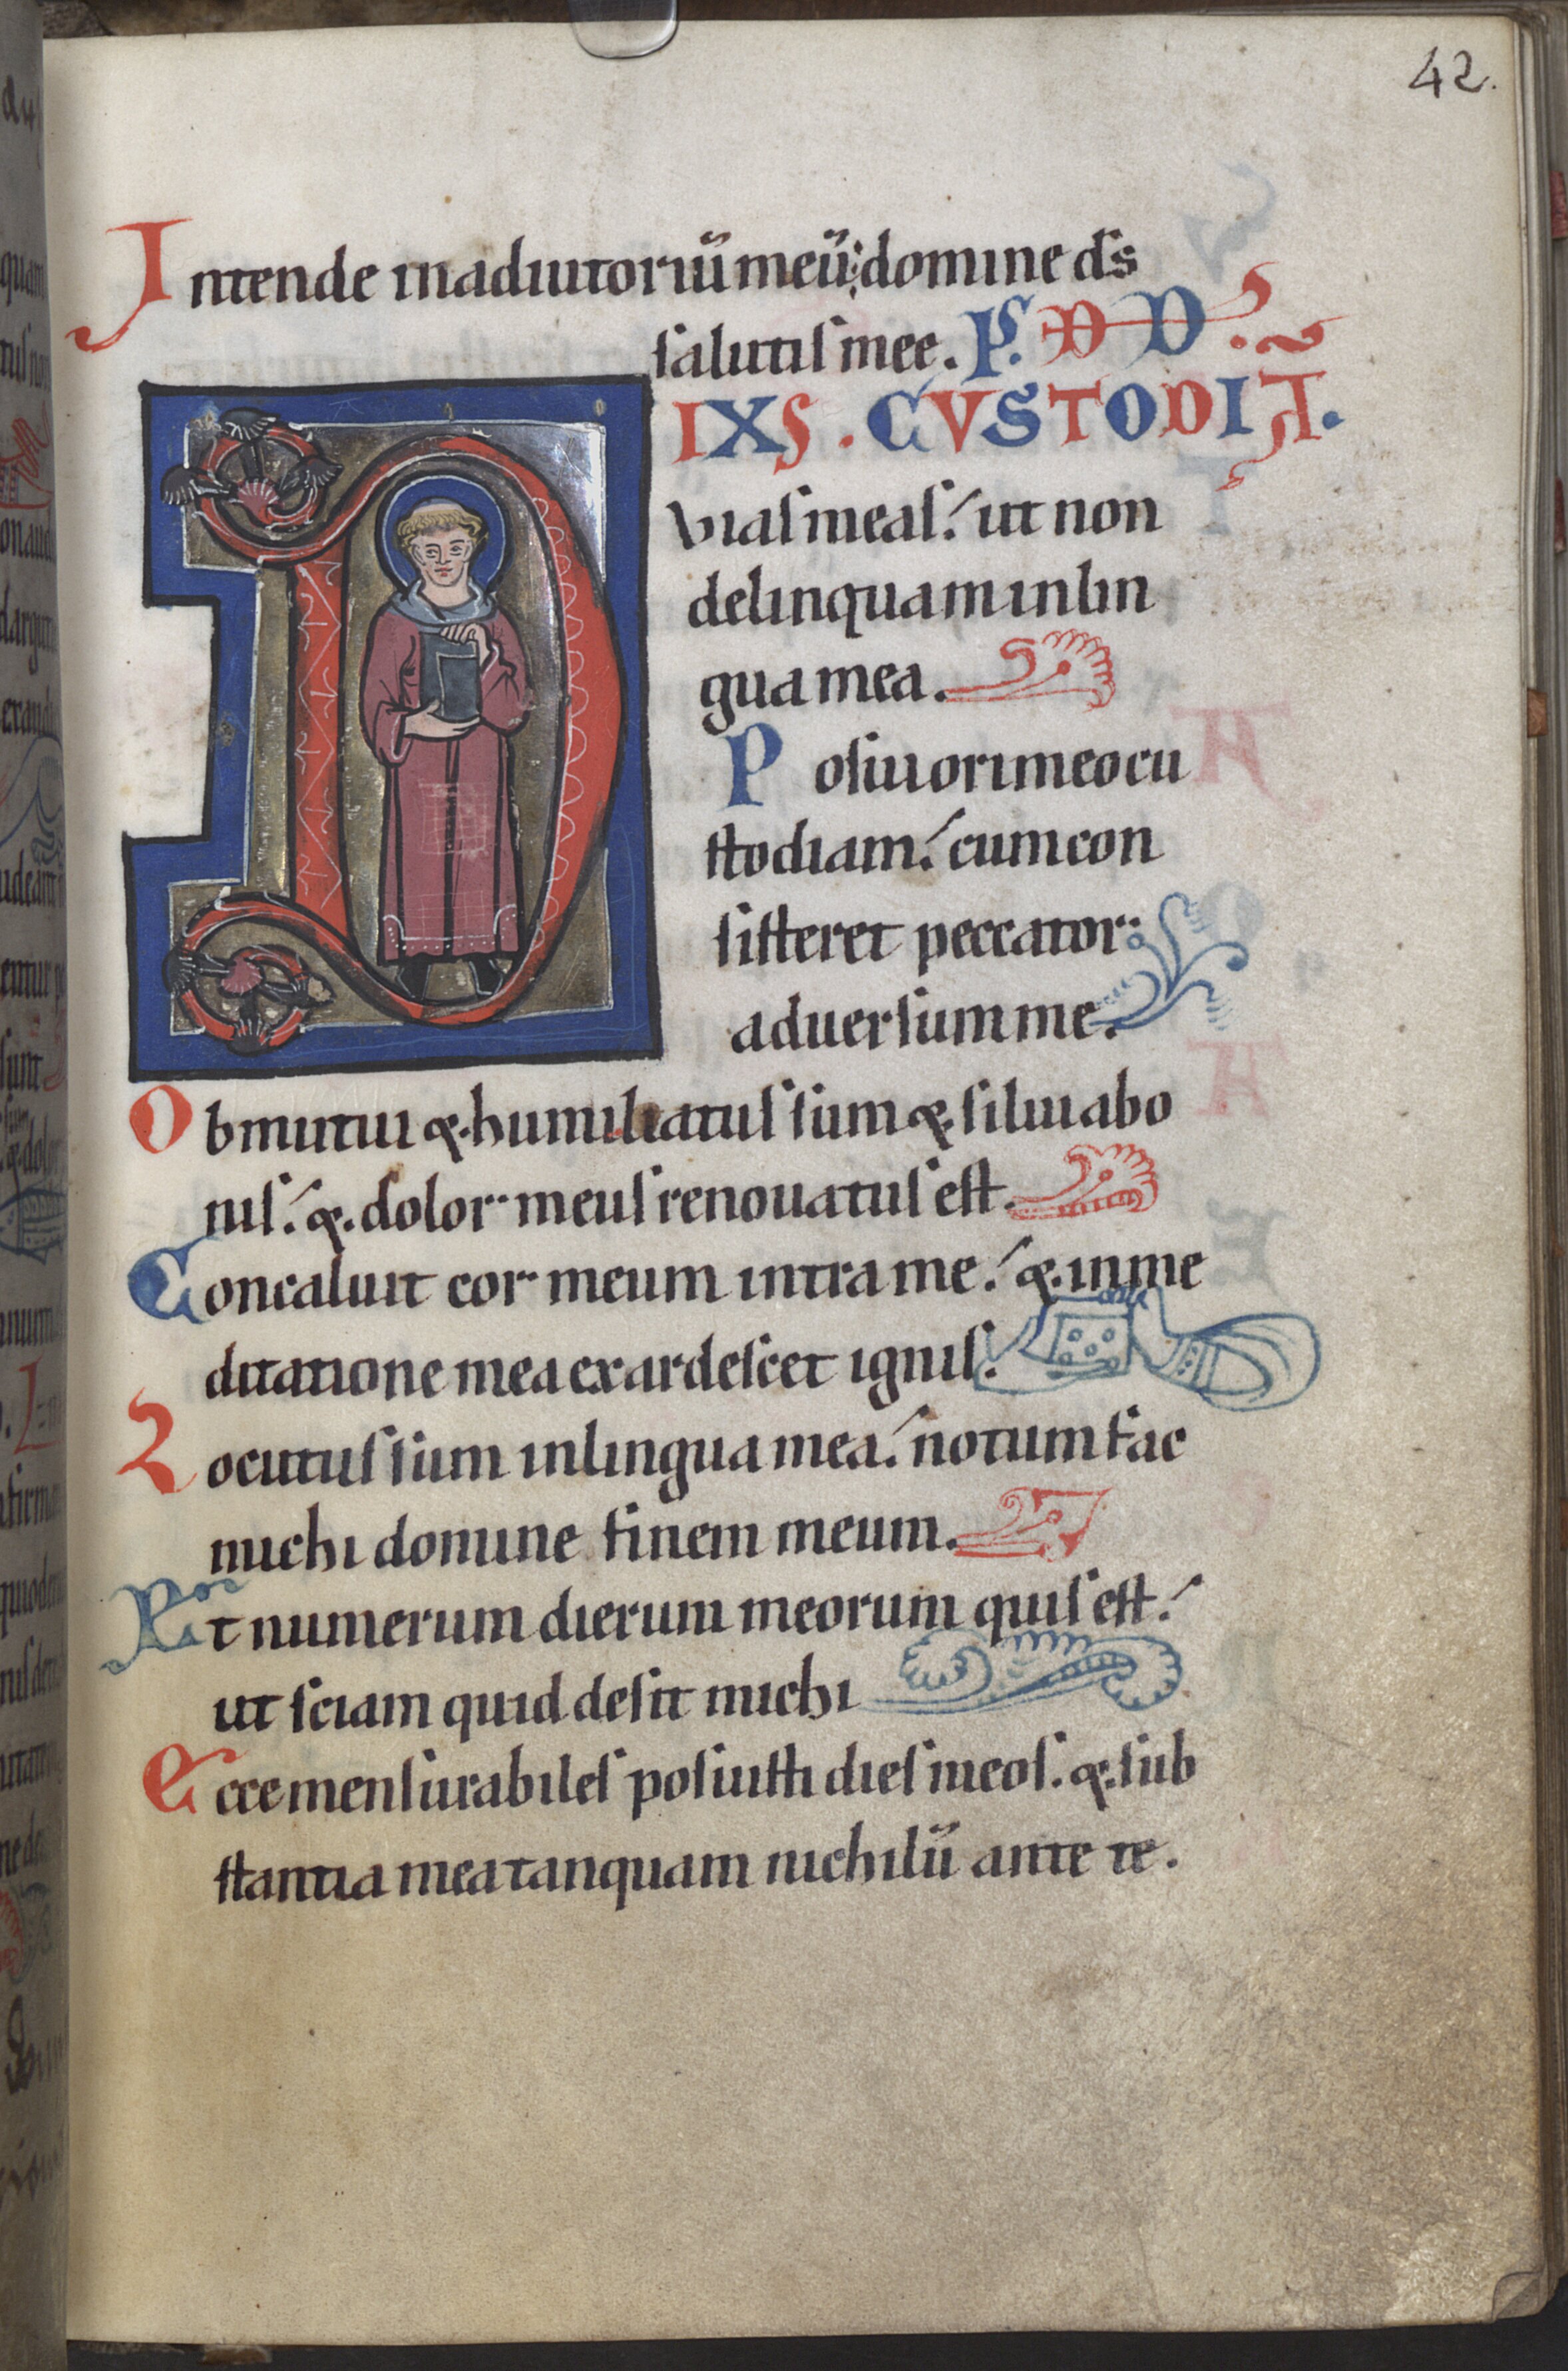 42.
Intende in adiutoriū meū: domine ds̄
salutis mee. Ps. DD.
DIXS. CVSTODIĀ.
vias meas: ut non
delinquam in lin
gua mea.
Posiui ori meo cu
stodiam: cum con
sisteret peccator
aduersum me.
Obmutui & humiliatus sum & silui a bo
nis: & dolor meus renouatus est.
Concaluit cor meum intra me: & in me
ditatione mea exardescet ignis.
Locutus sum in lingua mea: notum fac
michi domine finem meum.
Et numerum dierum meorum quis est:
ut sciam quid desit michi
Ecce mensurabiles posuisti dies meos. & sub
stantia mea tanquam nichilū ante te.